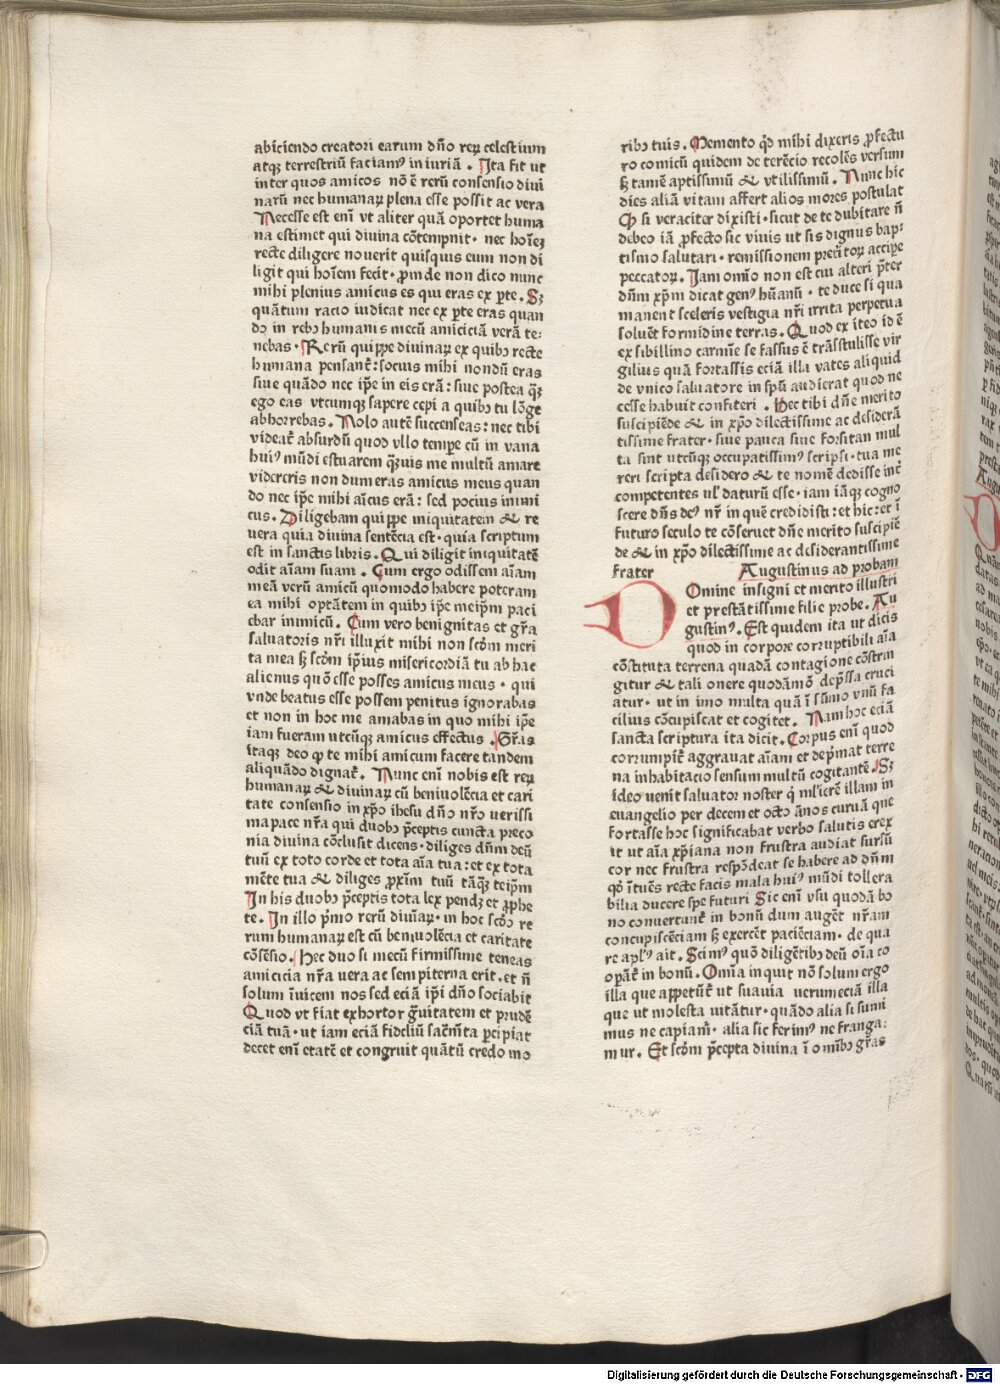 abiciendo creatori earum dño reꝝ celestium
atqꝫ terrestriũ faciamꝰ in iuriã . Ita fit ut
inter quos amicos nõ ẽ rerũ consensio diui
narũ nec humanaꝝ plena esse possit ac vera
Necesse est enĩ vt aliter quã oportet huma
na estimet qui diuina cõtempnit· nec hoĩeꝫ
recte diligere nouerit quisquis eum non di
ligit qui hoĩem fecit· ꝓinde non dico nunc
mihi plenius amicus es qui eras ex ꝑte . Sꝫ
quãtum racio iudicat nec ex ꝑte eras quan
do in rebꝰ humanis mecũ amiciciã verã te-
nebas· Rerũ quippe diuinaꝝ ex quibꝰ recte
humana pensant̃: socius mihi nondũ eras
siue quãdo nec ip̃e in eis erã: siue postea qꝫ
ego eas vtcumqꝫ sapere cepi a quibꝰ tu lõge
abhorrebas . Nolo autẽ succenseas: nec tibi
videat̃ absurdũ quod vllo tempe cũ in vana
huiꝰ mũdi estuarem qꝫuis me multũ amare
videreris non dum eras amicus meus quan
do nec ip̃e mihi aĩcus erã: sed pocius inimi
cus . Diligebam quippe iniquitatem & re
vera quia diuina sentẽcia est· quia scriptum
est in sanctis libris . Qui diligit iniquitatẽ
odit aĩam suam . Cum ergo odissem aĩam
meã verũ amicũ quomodo habere poteram
ea mihi optãtem in quibꝰ ip̃e meip̃m paci
ebar inimicũ . Cum vero benignitas et gr̃a
saluatoris nr̃i illuxit mihi non scd̃m meri
ta mea sꝫ scd̃m ip̃ius misericordiã tu ab hac
alienus quõ esse posses amicus meus · qui
vnde beatus esse possem penitus ignorabas
et non in hoc me amabas in quo mihi ip̃e
iam fueram utcũqꝫ amicus effectus . Gr̃as
itaqꝫ deo qꝫ te mihi amicum facere tandem
aliquãdo dignat̃ . Nunc enĩ nobis est reꝝ
humanaꝝ & diuinaꝝ cũ beniuolẽcia et cari
tate consensio in xp̃o ihesu dño nr̃o uerissi
ma pace nr̃a qui duobꝰ p̃ceptis cuncta preco
nia diuina cõclusit dicens· diliges dñm deũ
tuũ ex toto corde et tota aĩa tua: et ex tota
mẽte tua & diliges ꝓxĩm tuũ tãqꝫ teip̃m
In his duobꝰ p̃ceptis tota lex pendꝫ et ꝓphe
te . In illo p̃mo rerũ diuiaꝝ· in hoc scd̃o re
rum humanaꝝ est cũ beniuolẽcia et caritate
cõsẽsio. Hec duo si mecũ firmissime teneas
amicicia nr̃a uera ac sempiterna erit· et ñ
solum ĩuicem nos sed eciã ip̃i dño sociabit
Quod vt fiat exhortor gr̃uitatem et prudẽ
ciã tuã· ut iam eciã fideliũ sacr̃mta ꝑcipiat
decet enĩ etatẽ et congruit quãtũ credo mo
ribꝰ tuis . Memento qd̃ mihi dixeris ꝓfectu
ro comicũ quidem de terẽcio recolẽs versum
sꝫ tamẽ aptissimũ & vtilissimũ . Nunc hic
dies aliã vitam affert alios mores postulat
Qꝫ si veraciter dixisti· sicut de te dubitare ñ
debeo iã ꝓfecto sic viuis ut sis dignus bap-
tismo salutari· remissionem preĩtoꝝ accipe
peccatoꝝ . Iam om̃o non est cui alteri p̃ter
dñm xp̃m dicat genꝰ hũanũ · te duce si qua
manent sceleris vestigia nr̃i irrita perpetua
soluẽt formidine terras . Quod ex iteo id ẽ
ex sibillino carmĩe se fassus ẽ trãsstulisse vir
gilius quã fortassis eciã illa vates aliquid
de vnico saluatore in spũ audierat quod ne
cesse habuit confiteri . Hec tibi dñe merito
suscipiẽde & in xp̃o dilectissime ac desiderã
tissime frater· siue pauca siue forsitan mul
ta sint utcũqꝫ occupatissimꝰ scripsi· tua me
reri scripta desidero & te nomẽ dedisse int̃
competentes ul̃ daturũ esse· iam iãqꝫ cogno
scere dñs deꝰ nr̃ in quẽ credidisti: et hic: et ĩ
futuro seculo te cõseruet dñe merito suscipiẽ
de & in xp̃o dilectissime ac desiderantissime
frater Augustinus ad probam
Domine insigni et merito illustri
et prestãtissime filie probe. Au
gustinꝰ . Est quidem ita ut dicis
quod in corpore corruptibili aĩa
cõstituta terrena quadã contagione cõstrin
gitur & tali onere quodãmõ dep̃ssa cruci
atur· ut in imo multa quã ĩ sũmo vnũ fa
cilius cõcupiscat et cogitet . Nam hoc eciã
sancta scriptura ita dicit . Corpus enĩ quod
corrumpit̃ aggrauat aĩam et dep̃mat terre
na inhabitacio sensum multũ cogitantẽ . Sꝫ
ideo uenit saluator noster q̇ mĺierẽ illam in
euangelio per decem et octo ãnos curuã que
fortasse hoc significabat verbo salutis erex
it ut aĩa xp̃iana non frustra audiat sursũ
cor nec frustra respõdeat se habere ad dñm
qd̃ ĩtuẽs recte facis mala huiꝰ mũdi tollera
bilia ducere spe futuri Sic enĩ vsu quodã bo
no conuertunt̃ in bonũ dum auget̃ nr̃am
concupiscẽciam sꝫ exercẽt paciẽciam· de qua
re apĺꝰ ait . Scimꝰ quõ diligẽtibꝰ deũ oĩa co
opãt̃ in bonũ . Omĩa inquit nõ solum ergo
illa que appetũt̃ ut suauia uerumeciã illa
que ut molesta uitãtur· quãdo alia si sumi
mus ne capiam̃· alia sic ferimꝰ ne franga-
mur . Et scd̃m p̃cepta diuina ĩ omĩbꝰ gr̃as
Digitalisierung gefördert durch die Deutsche Forschungsgemeinschaft - DFG